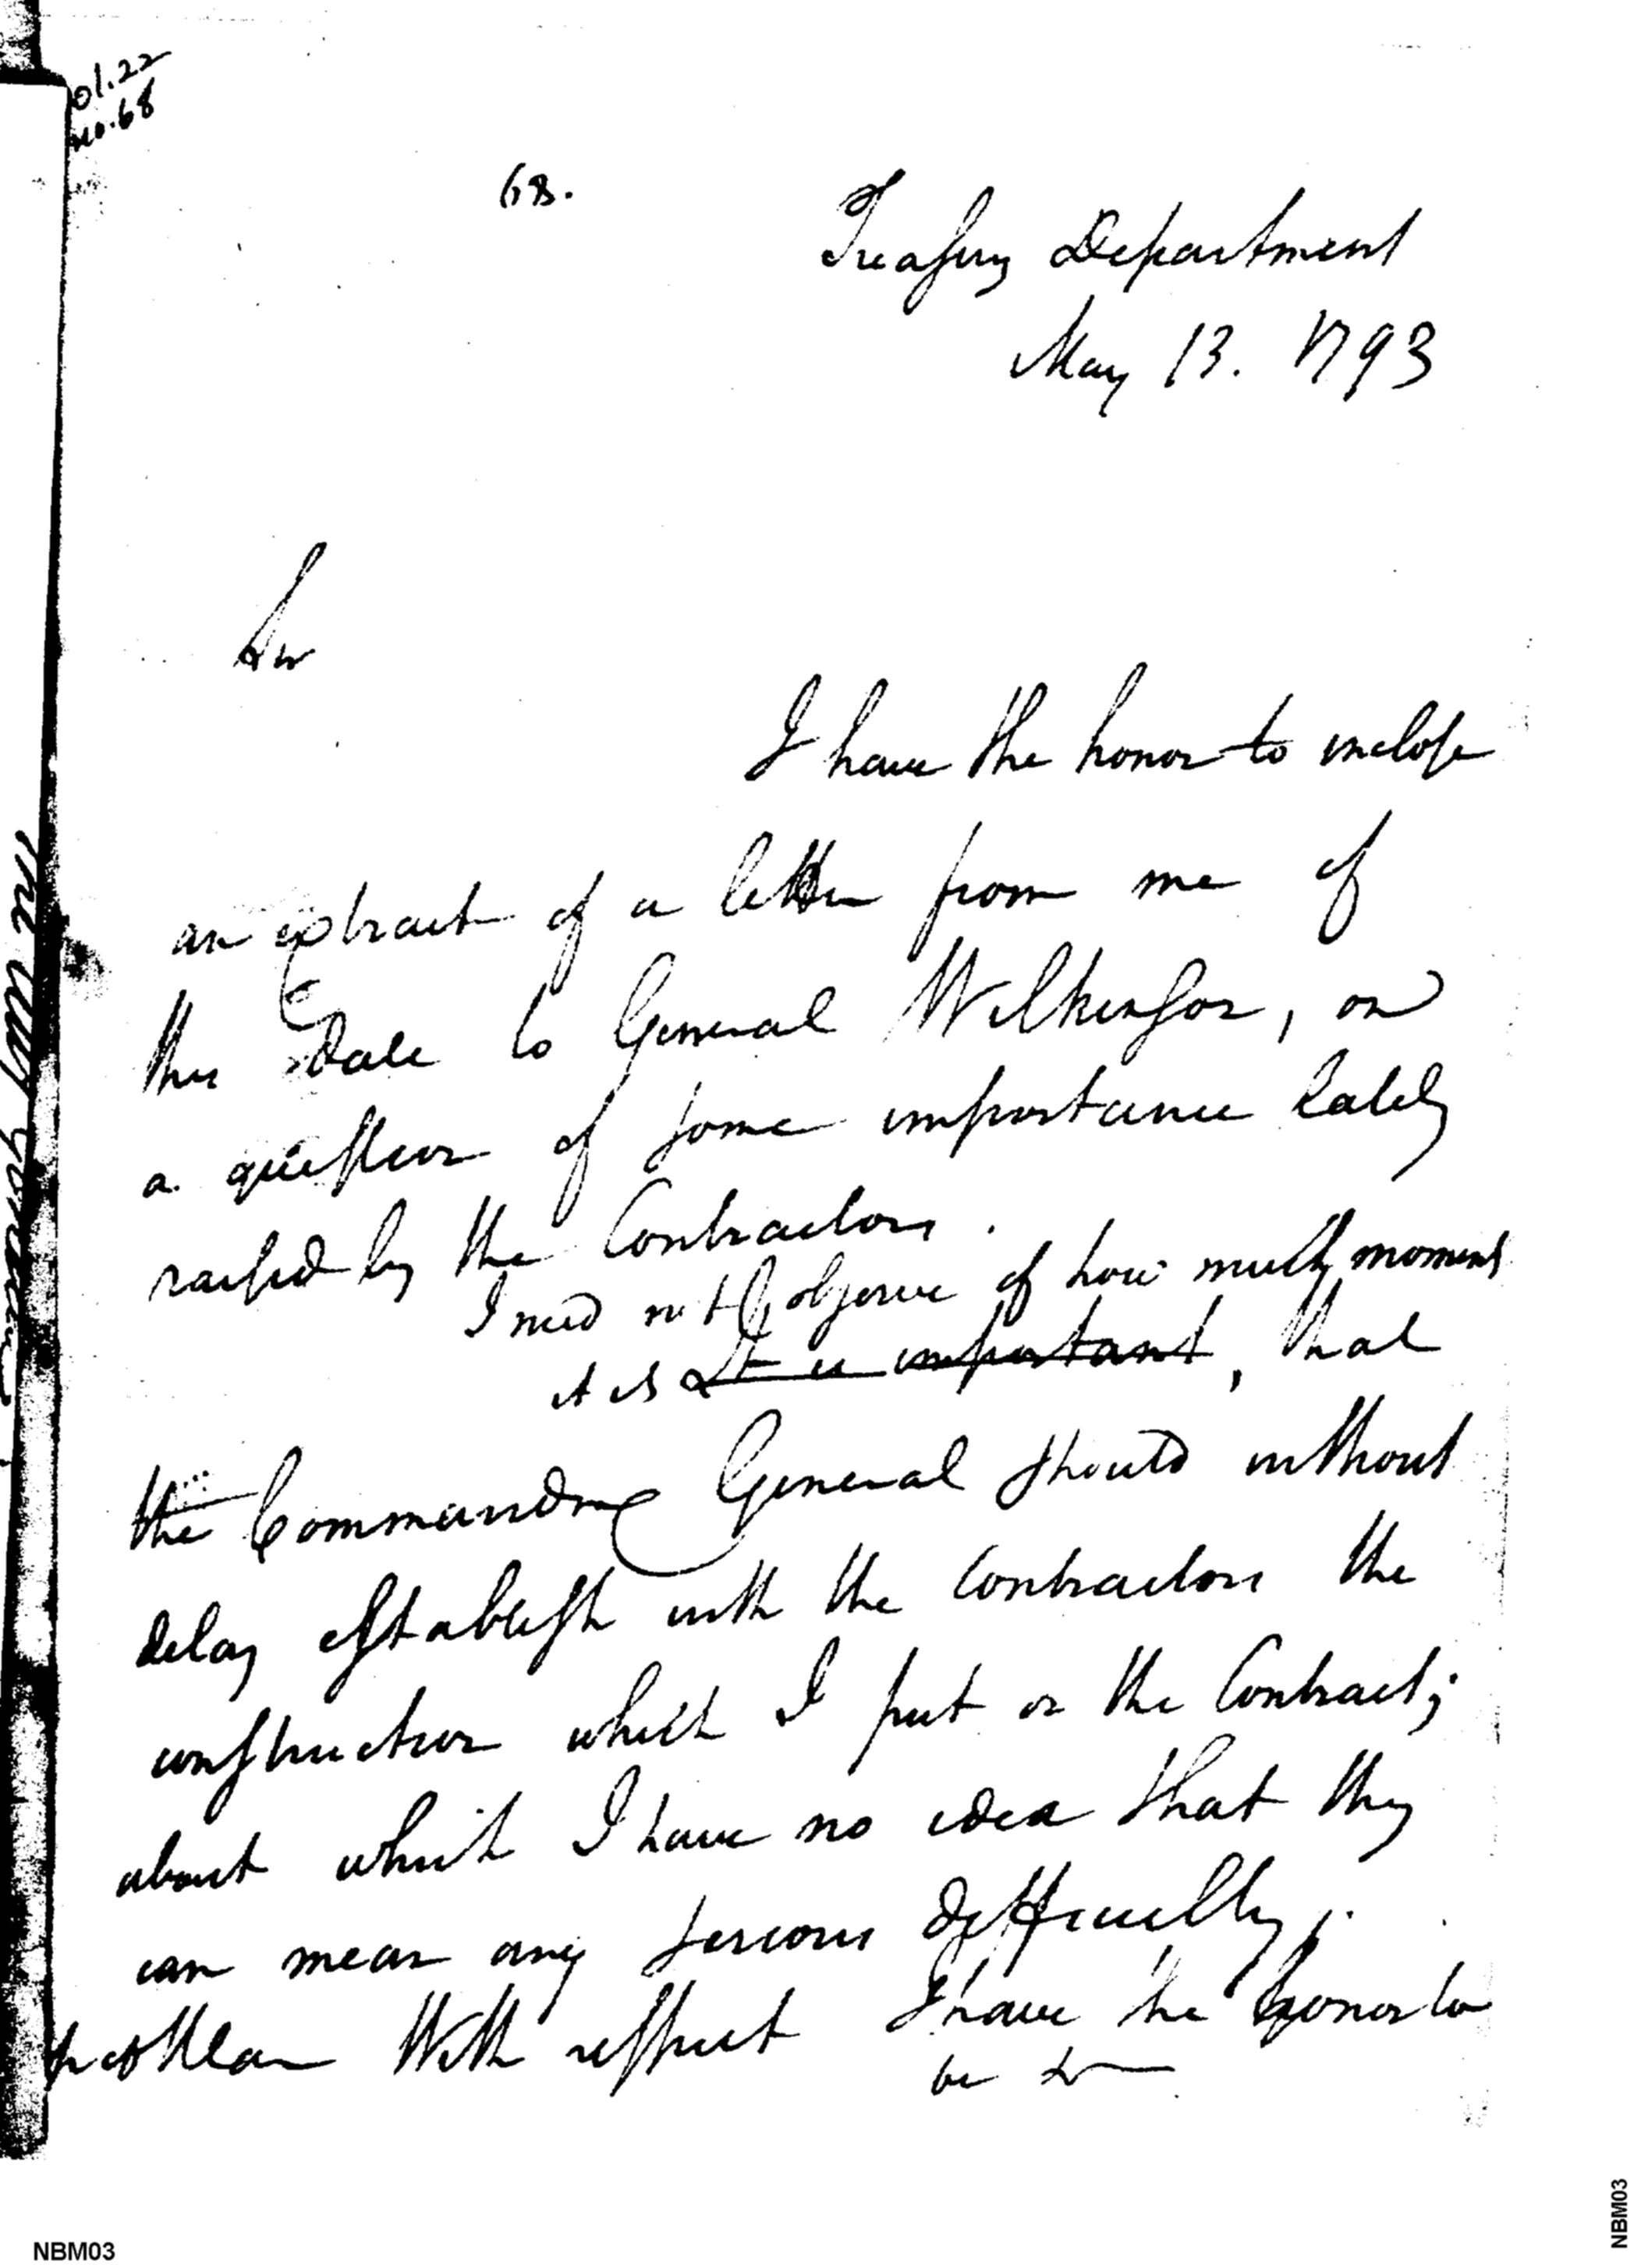 ol. 22
No. 68
68.
Treasury Department
May 13. 1793
Sir
I have the honor to inclose
an extract of a letter from me of
this date to General Wilkinson, on
a question of some importance lately
raised by the Contractors.
I need not observe of how much moment
it is It is important, that
the Commanding General should without
delay establish with the Contractors the
construction which I put on the Contract;
about which I have no idea that they
can mean any serious difficulty.
With respect I have the honor to
be &
NBM03
NBM03